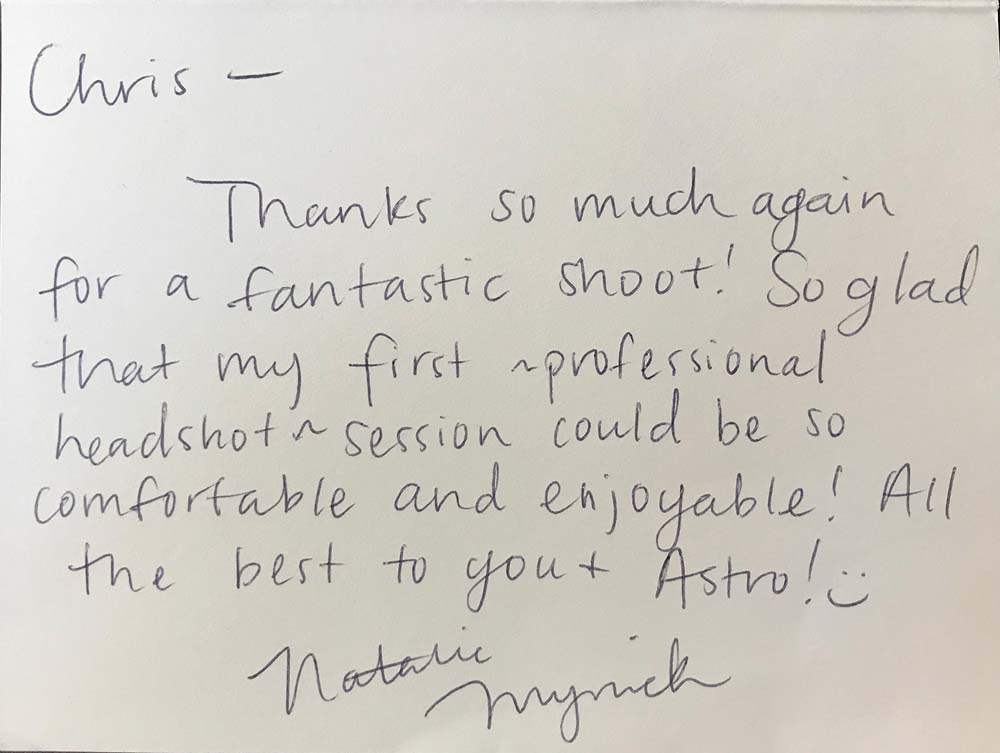 Chris —
Thanks so much again
for a fantastic shoot! So glad
that my first ~professional
headshot~ session could be so
comfortable and enjoyable! All
the best to you + Astro! :)
Natalie